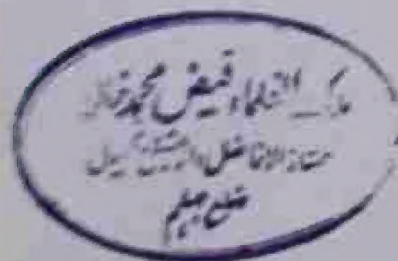 ملک العلماء فیض محمد خان
ممتاز الافاضل
ضلع جہلم